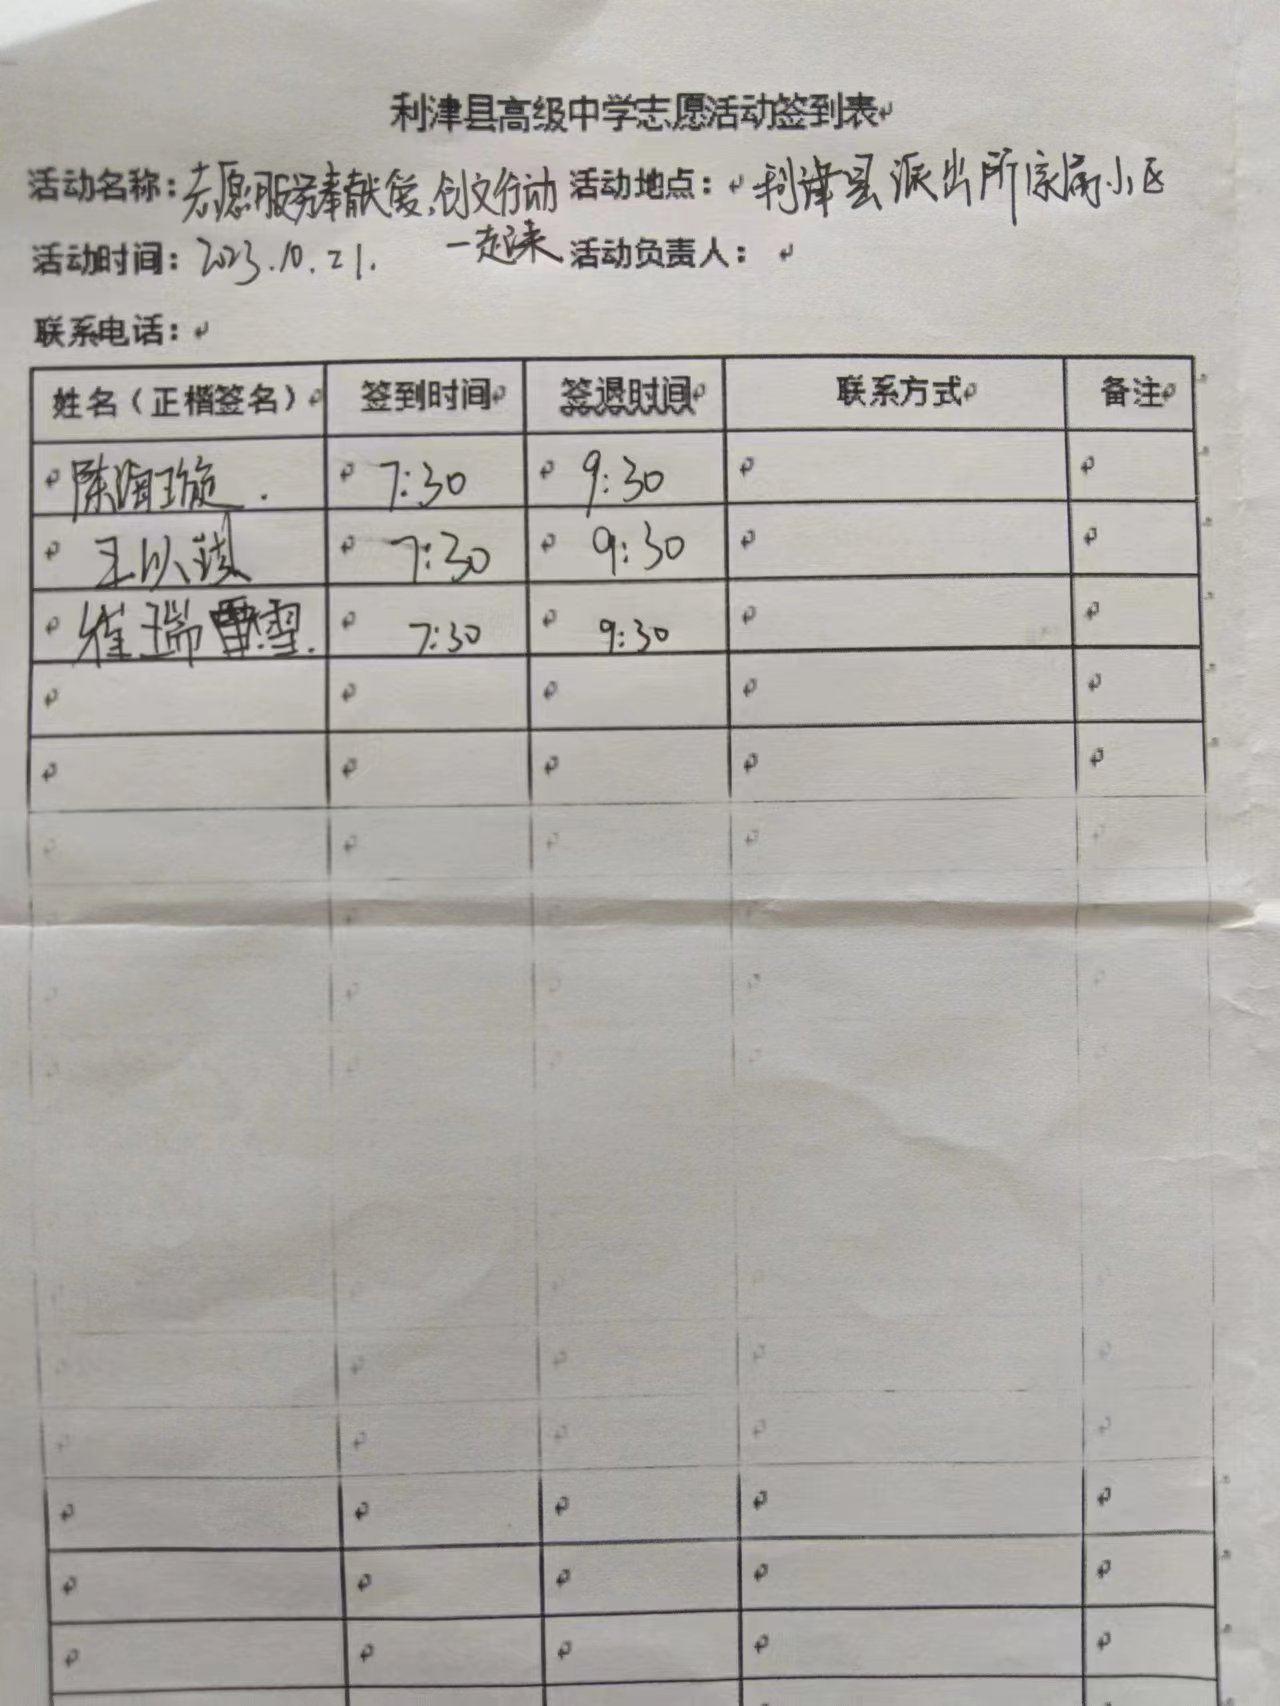 利津县高级中学志愿活动签到表
活动名称：志愿服务奉献爱，创文行动 活动地点： 利津县派出所家属小区
活动时间：2023.10.21. 一起来 活动负责人：
联系电话：
姓名（正楷签名） 签到时间 签退时间 联系方式 备注
陈海璇. 7:30 9:30
王以琪 7:30 9:30
崔瑞雪. 7:30 9:30